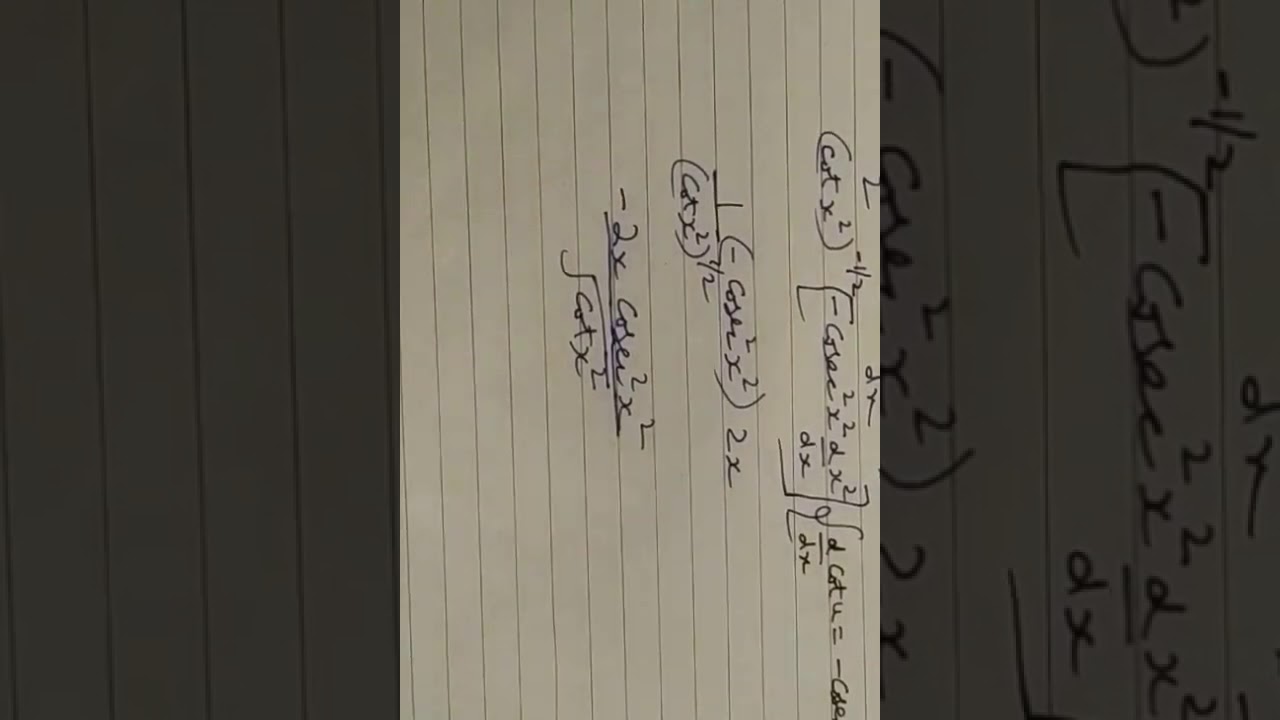 dx
(cot x²)^-1/2 [-cosec² x² d/dx x²] [d/dx cot u = -cose
1/(cot x²)^1/2 (-cosec² x²) 2x
-2x cosec² x² / √cot x²